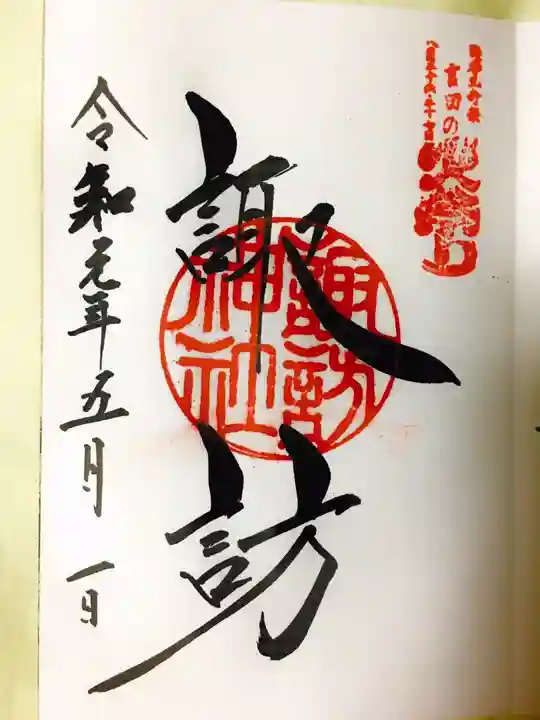 吉田の火祭り
諏訪
諏訪神社
令和元年五月一日